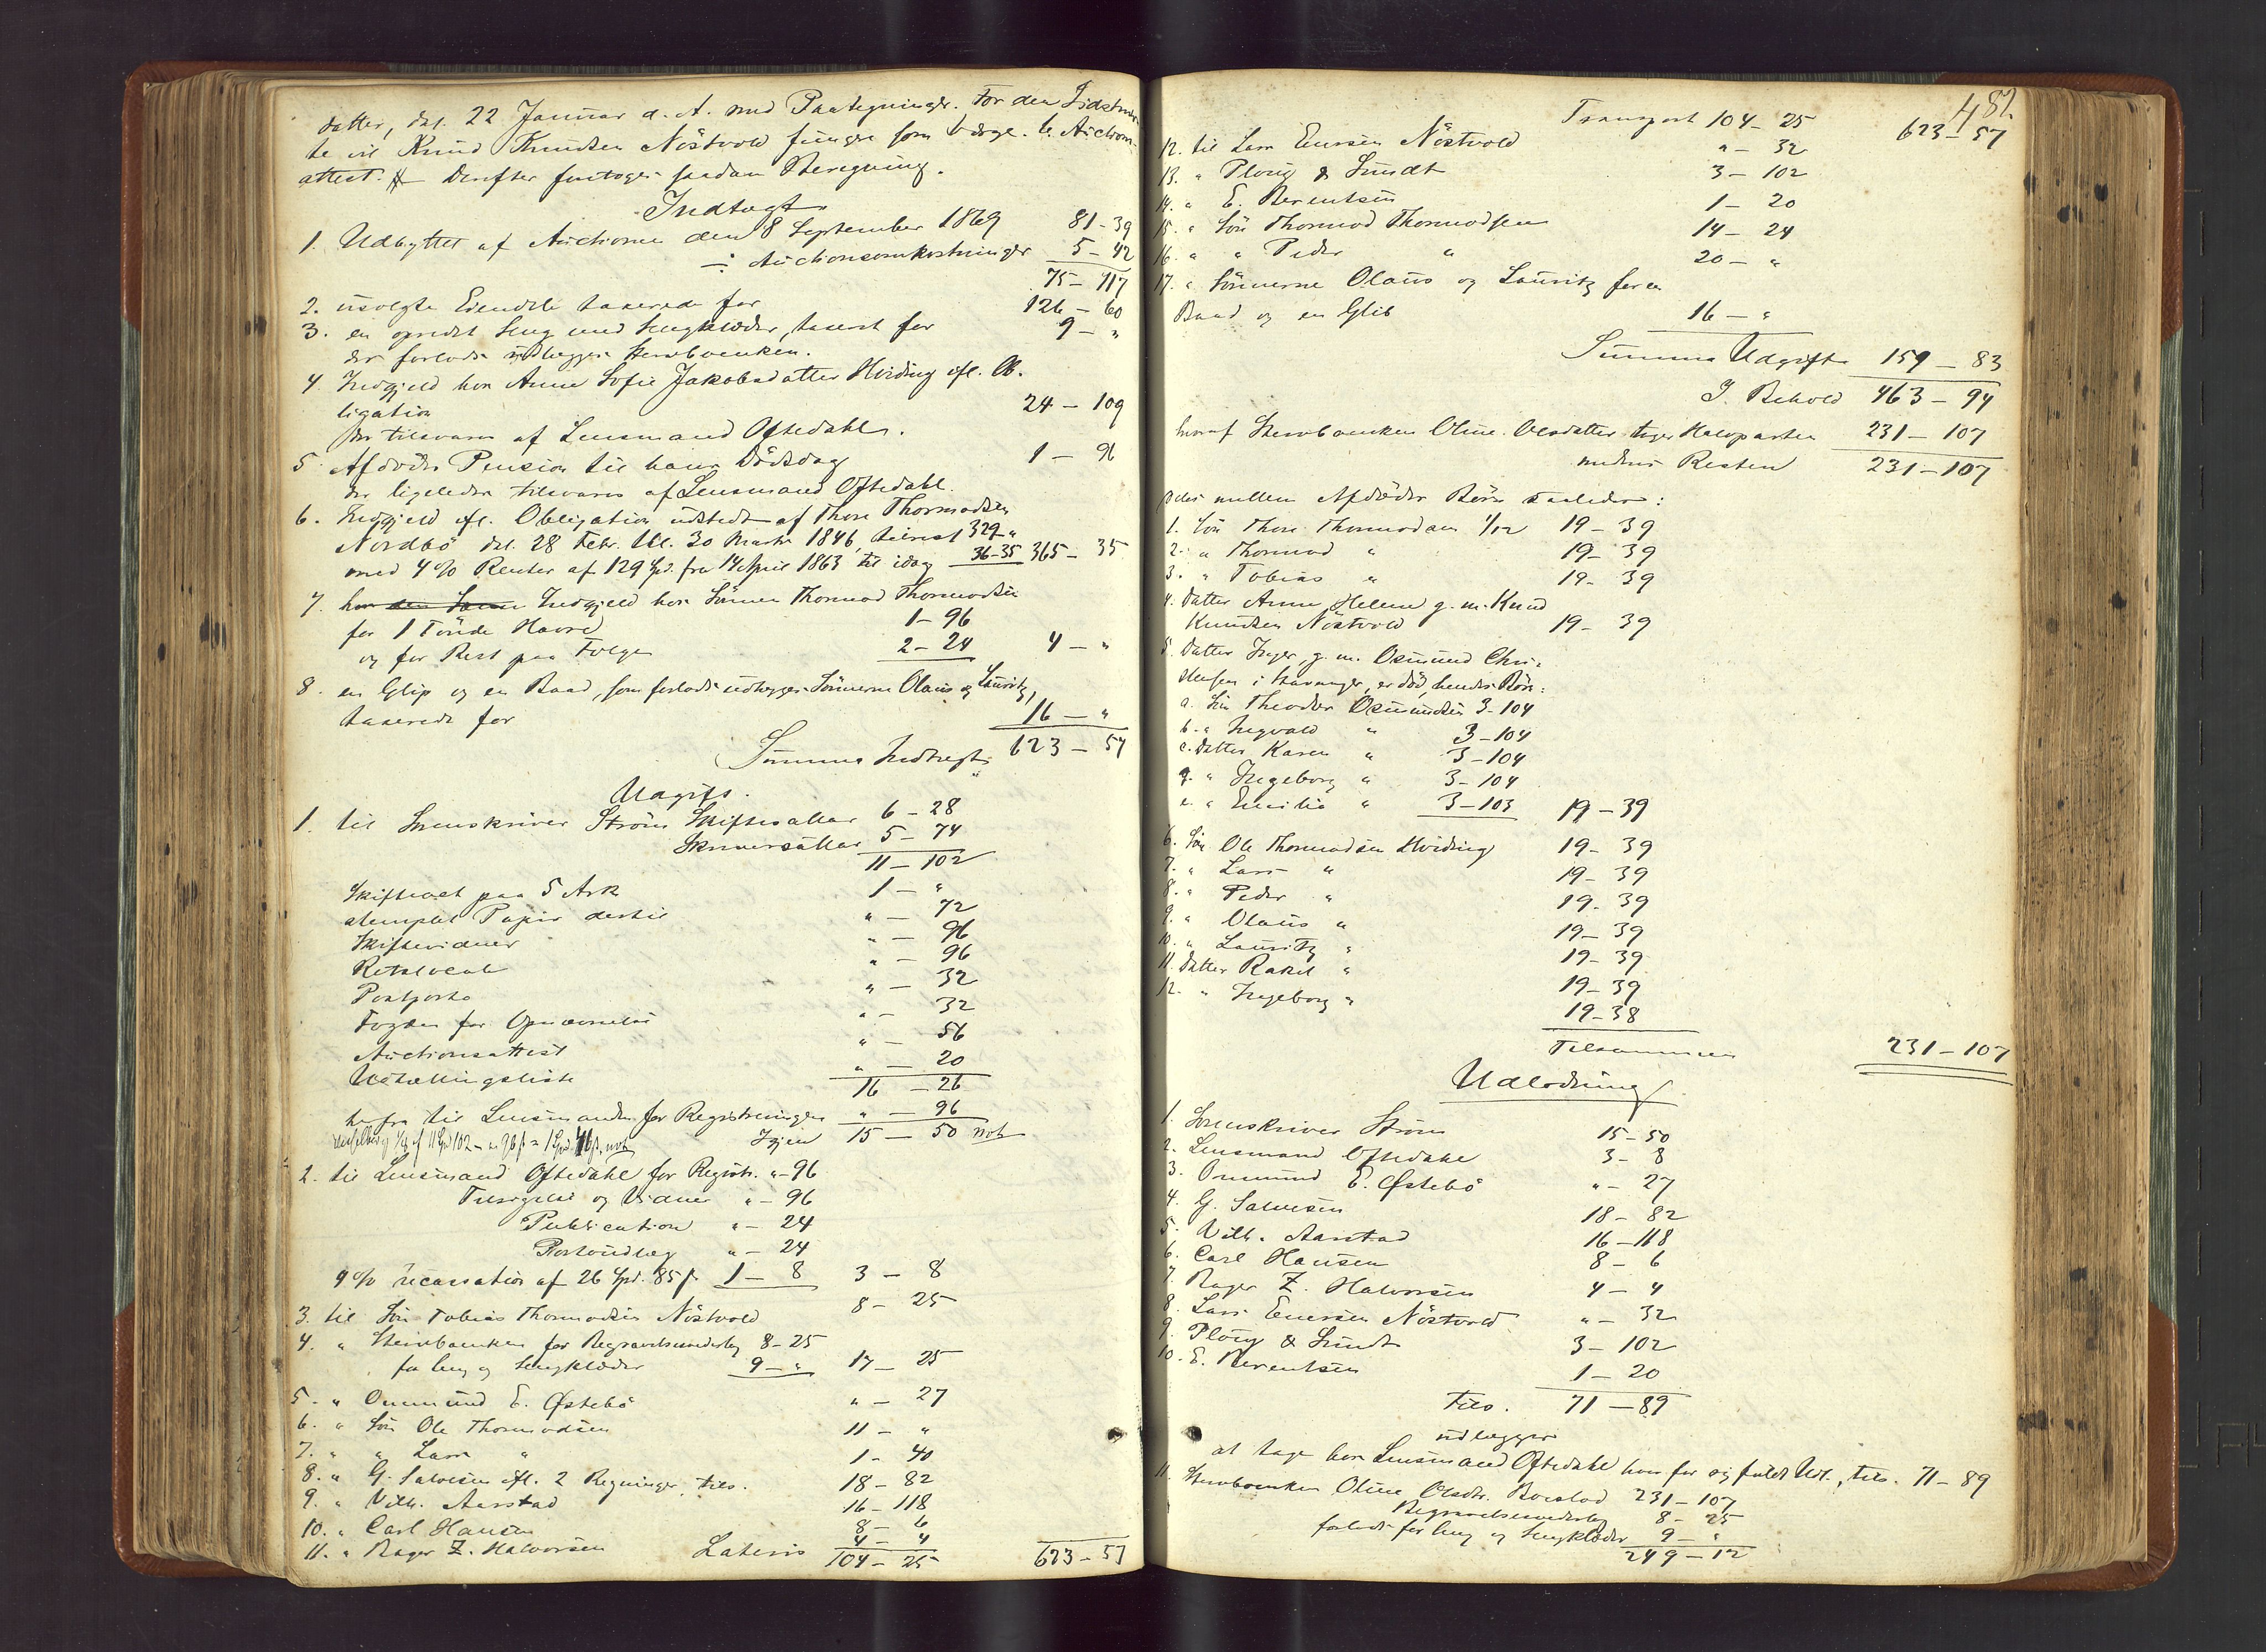 datter, dat. 22 Januar d. A. med Paategninger. For den Sidstnævn-
te vil Knud Knudsen Nöstvold fungere som Værge. b. Auctions-
attest. Derefter foretoges saadan Beregning.
Indtægt
1. Udbyttet af Auctionen den 8 September 1869 81-39
÷ Auctionsomkostninger 5-42
75-117
2. usolgte Eiendele taxerede for 126-60
3. en opredt Seng med Sengklæder, taxeret for 9-"
der forlods udlægges Stervboenken.
4. Indgjeld hos Anne Sofie Jakobsdatter Hviding efl. Ob-
ligation 24-109
der tilsvares af Lensmand Oftedahl.
5. Afdødes Pension til hans Dödsdag 1-96
der ligeledes tilsvares af Lensmand Oftedahl.
6. Indgjeld efl. Obligation udstedt af Thore Thormodsen
Nordbö dat. 28 Febr. tbl. 30 Marts 1846, tilrest 329-"
med 4% Renter af 129 Spd. fra 14 April 1863 til idag 36-35 365-35
7. hos den Sønnen Indgjeld hos Sönnen Thormod Thormodsen
for 1 Tönde Havre 1-96
og for Rest paa Følge 2-24 4-"
8. en Glip og en Baad, som forlods udlægges Sönnerne Olaus og Lauritz,
taxerede for 16-"
Summa Indtægt 623-57
Udgift.
1. til Sorenskriver Ström Skiftesallar 6-28
Skriversallar 5-74
11-102
Skifteact paa 5 Ark 1-"
stemplet Papir dertil "-72
Skiftevidner "-96
Retslocale "-96
Postporto "-32
Fogden for Opnævnelse "-32
Auctionsattest "-56
Udtællingsliste "-20
16-26
herfra til Lensmanden for Registreringen "-96
Igjen 15-50 not
2. til Lensmand Oftedahl for Registr. "-96
Tilsigelse og Vidner "-96
Publication "-24
Portoudlæg "-24
4% incassation af 26 Spd. 85 s. 1-8 3-8
3. til Sön Tobias Thormodsen Nöstvold 8-25
4. " Stervboenken for Begravelsesudlæg 8-25
for Seng og Sengklæder 9-" 17-25
5. " Ommund E. Østebö "-27
6. " Sön Ole Thormodsen 11-"
7. " " Lars " 1-40
8. " G. Salvesen efl. 2 Regninger, tils. 18-82
9. " Vilh. Aarstad 16-118
10. " Carl Hansen 8-6
11. " Rager Z. Halvorsen 4-4
Lateris 104-25 623-57
482
Transport 104-25 623-57
12. til Lars Enersen Nöstvold "-32
13. " Ploug & Sundt 3-102
14. " E. Berentsen 1-20
15. " Sön Thormod Thormodsen 14-24
16. " " Peder " 20-"
17. " Sönnerne Olaus og Lauritz for en
Baad og en Glib 16-"
Summa Udgift 159-83
I Behold 463-94
hvoraf Stervboenken Oline Olsdatter tager Halvparten 231-107
medens Resten 231-107
deles mellem Afdödes Börn saaledes:
1. Sön Thore Thormodsen 1/12 19-39
2. " Thormod " 19-39
3. " Tobias " 19-39
4. Datter Anne Helene g. m. Knud
Knudsen Nöstvold 19-39
5. Datter Inger, g. m. Osmund Chri-
stensen i Stavanger, er död, hendes Börn:
a. Sön Theodor Osmundsen 3-104
b. " Ingvald " 3-104
c. Datter Karen " 3-104
d. " Ingeborg " 3-104
e. " Emilie " 3-103 19-39
6. Sön Ole Thormodsen Hviding 19-39
7. " Lars " 19-39
8. " Peder " 19-39
9. " Olaus " 19-39
10. " Lauritz " 19-39
11. Datter Rakel " 19-39
12. " Ingeborg " 19-38
Tilsammen 231-107
Udlodning
1. Sorenskriver Ström 15-50
2. Lensmand Oftedahl 3-8
3. Ommund E. Østebö "-27
4. G. Salvesen 18-82
5. Vilh. Aarstad 16-118
6. Carl Hansen 8-6
7. Rager Z. Halvorsen 4-4
8. Lars Enersen Nöstvold "-32
9. Ploug & Sundt 3-102
10. E. Berentsen 1-20
Tils. 71-89
udlægges
at tage hos Lensmand Oftedahl hver for sig fuldt Udl., tils. 71-89
11. Stervboenken Oline Olsdtr. Boeslod 231-107
Begravelsesudlæg 8-25
forlods for Seng og Sengklæder 9-"
249-12